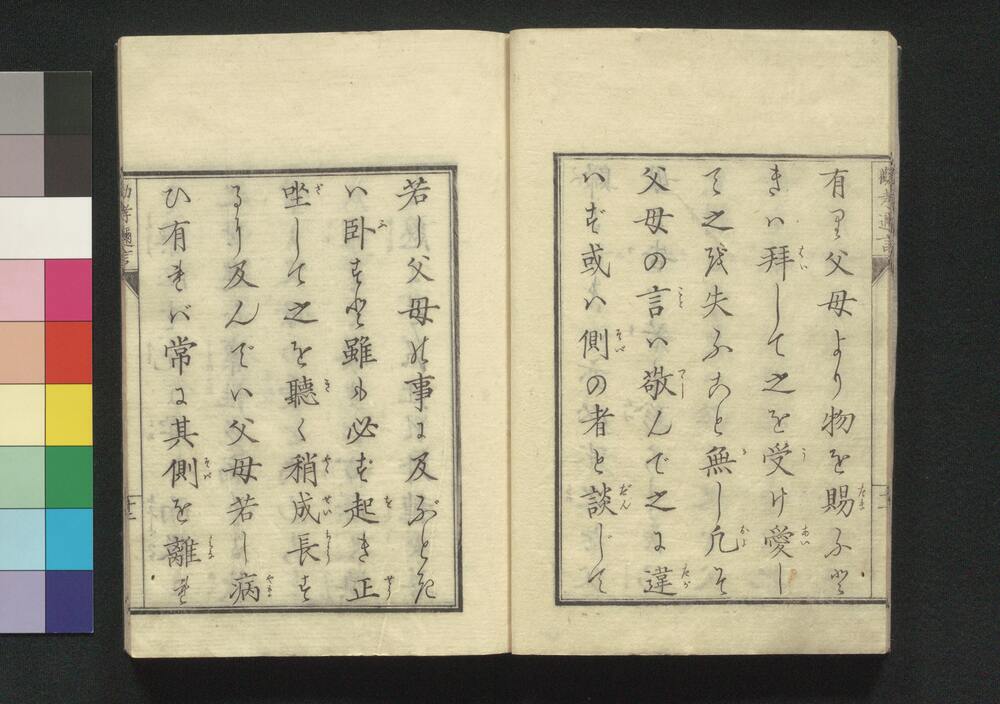 有り父母より物を賜ふと
きハ拝して之を受け愛し
て之を失ふこと無し凡そ
父母の言ハ敬んで之に違
ハず或ハ側の者と談じて
若し父母の事に及ぶとき
ハ臥すと雖も必ず起き正
坐して之を聴く稍成長す
るに及んでハ父母若し病
ひ有れバ常に其側を離れ